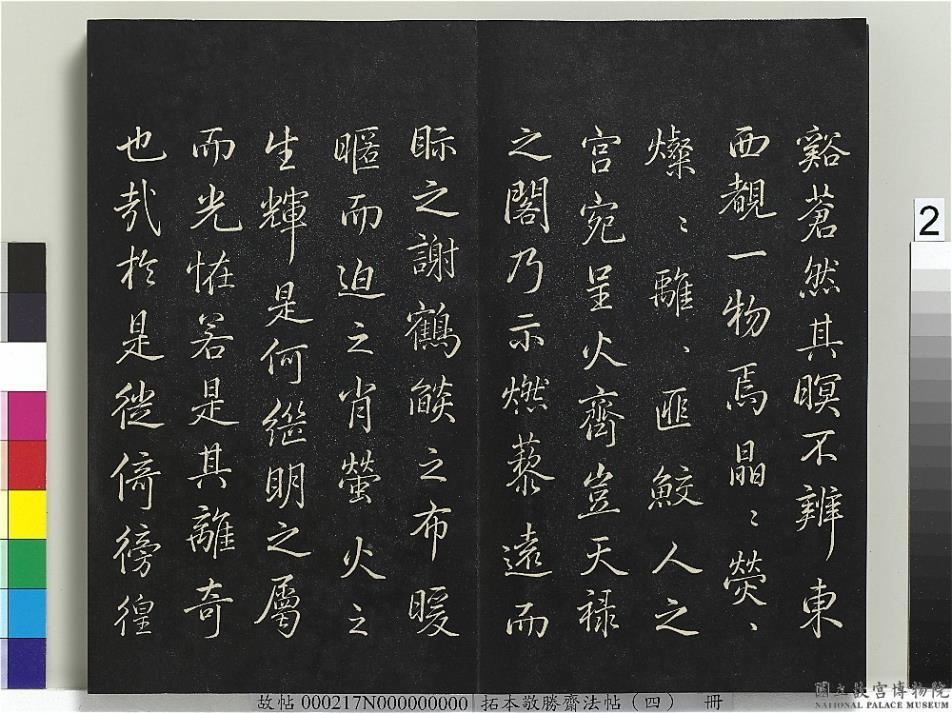 谿蒼然其暝不辨東
西覩一物焉晶〻熒〻
燦〻離〻匪鮫人之
宮宛呈火齊豈天祿
之閣乃示燃藜遠而
眎之謝鶴燄之布暖
暱而迫之肖螢火之
生輝是何繼明之屬
而光恠若是其離奇
也哉於是徙倚徬徨
2
故帖 000217N000000000 拓本敬勝齋法帖（四） 冊
國立故宮博物院
NATIONAL PALACE MUSEUM